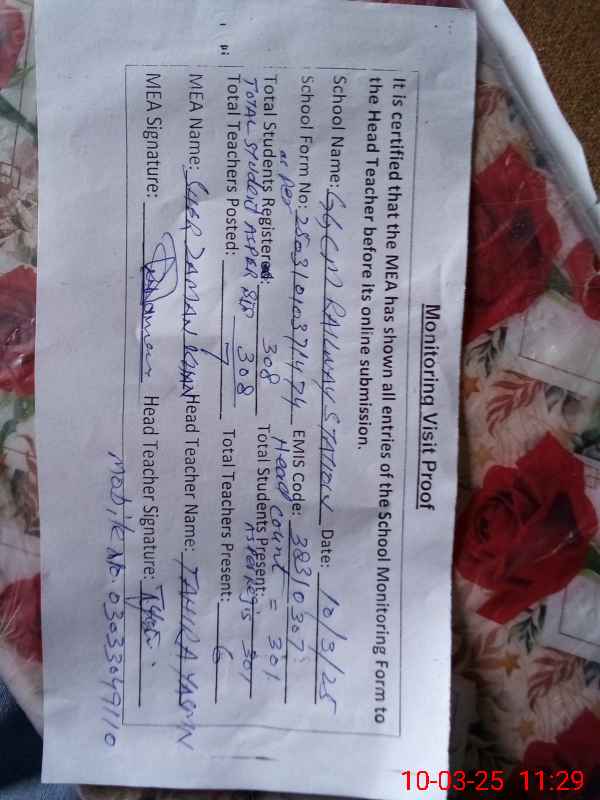 Monitoring Visit Proof
It is certified that the MEA has shown all entries of the School Monitoring Form to
the Head Teacher before its online submission.
School Name: GGCM RAILWAY STATION Date: 10/3/25
School Form No: 2503101037474 EMIS Code: 38310307
as Per Head count = 301
Total Students Registered: 308 Total Students Present:
TOTAL STUDENT AS PER SIS 308 AS PER Regis 301
Total Teachers Posted: 7 Total Teachers Present: 6
MEA Name: SHER ZAMAN KHAN Head Teacher Name: TAHIRA YASMIN
MEA Signature: Head Teacher Signature:
Mobile No. 03033049110
10-03-25 11:29